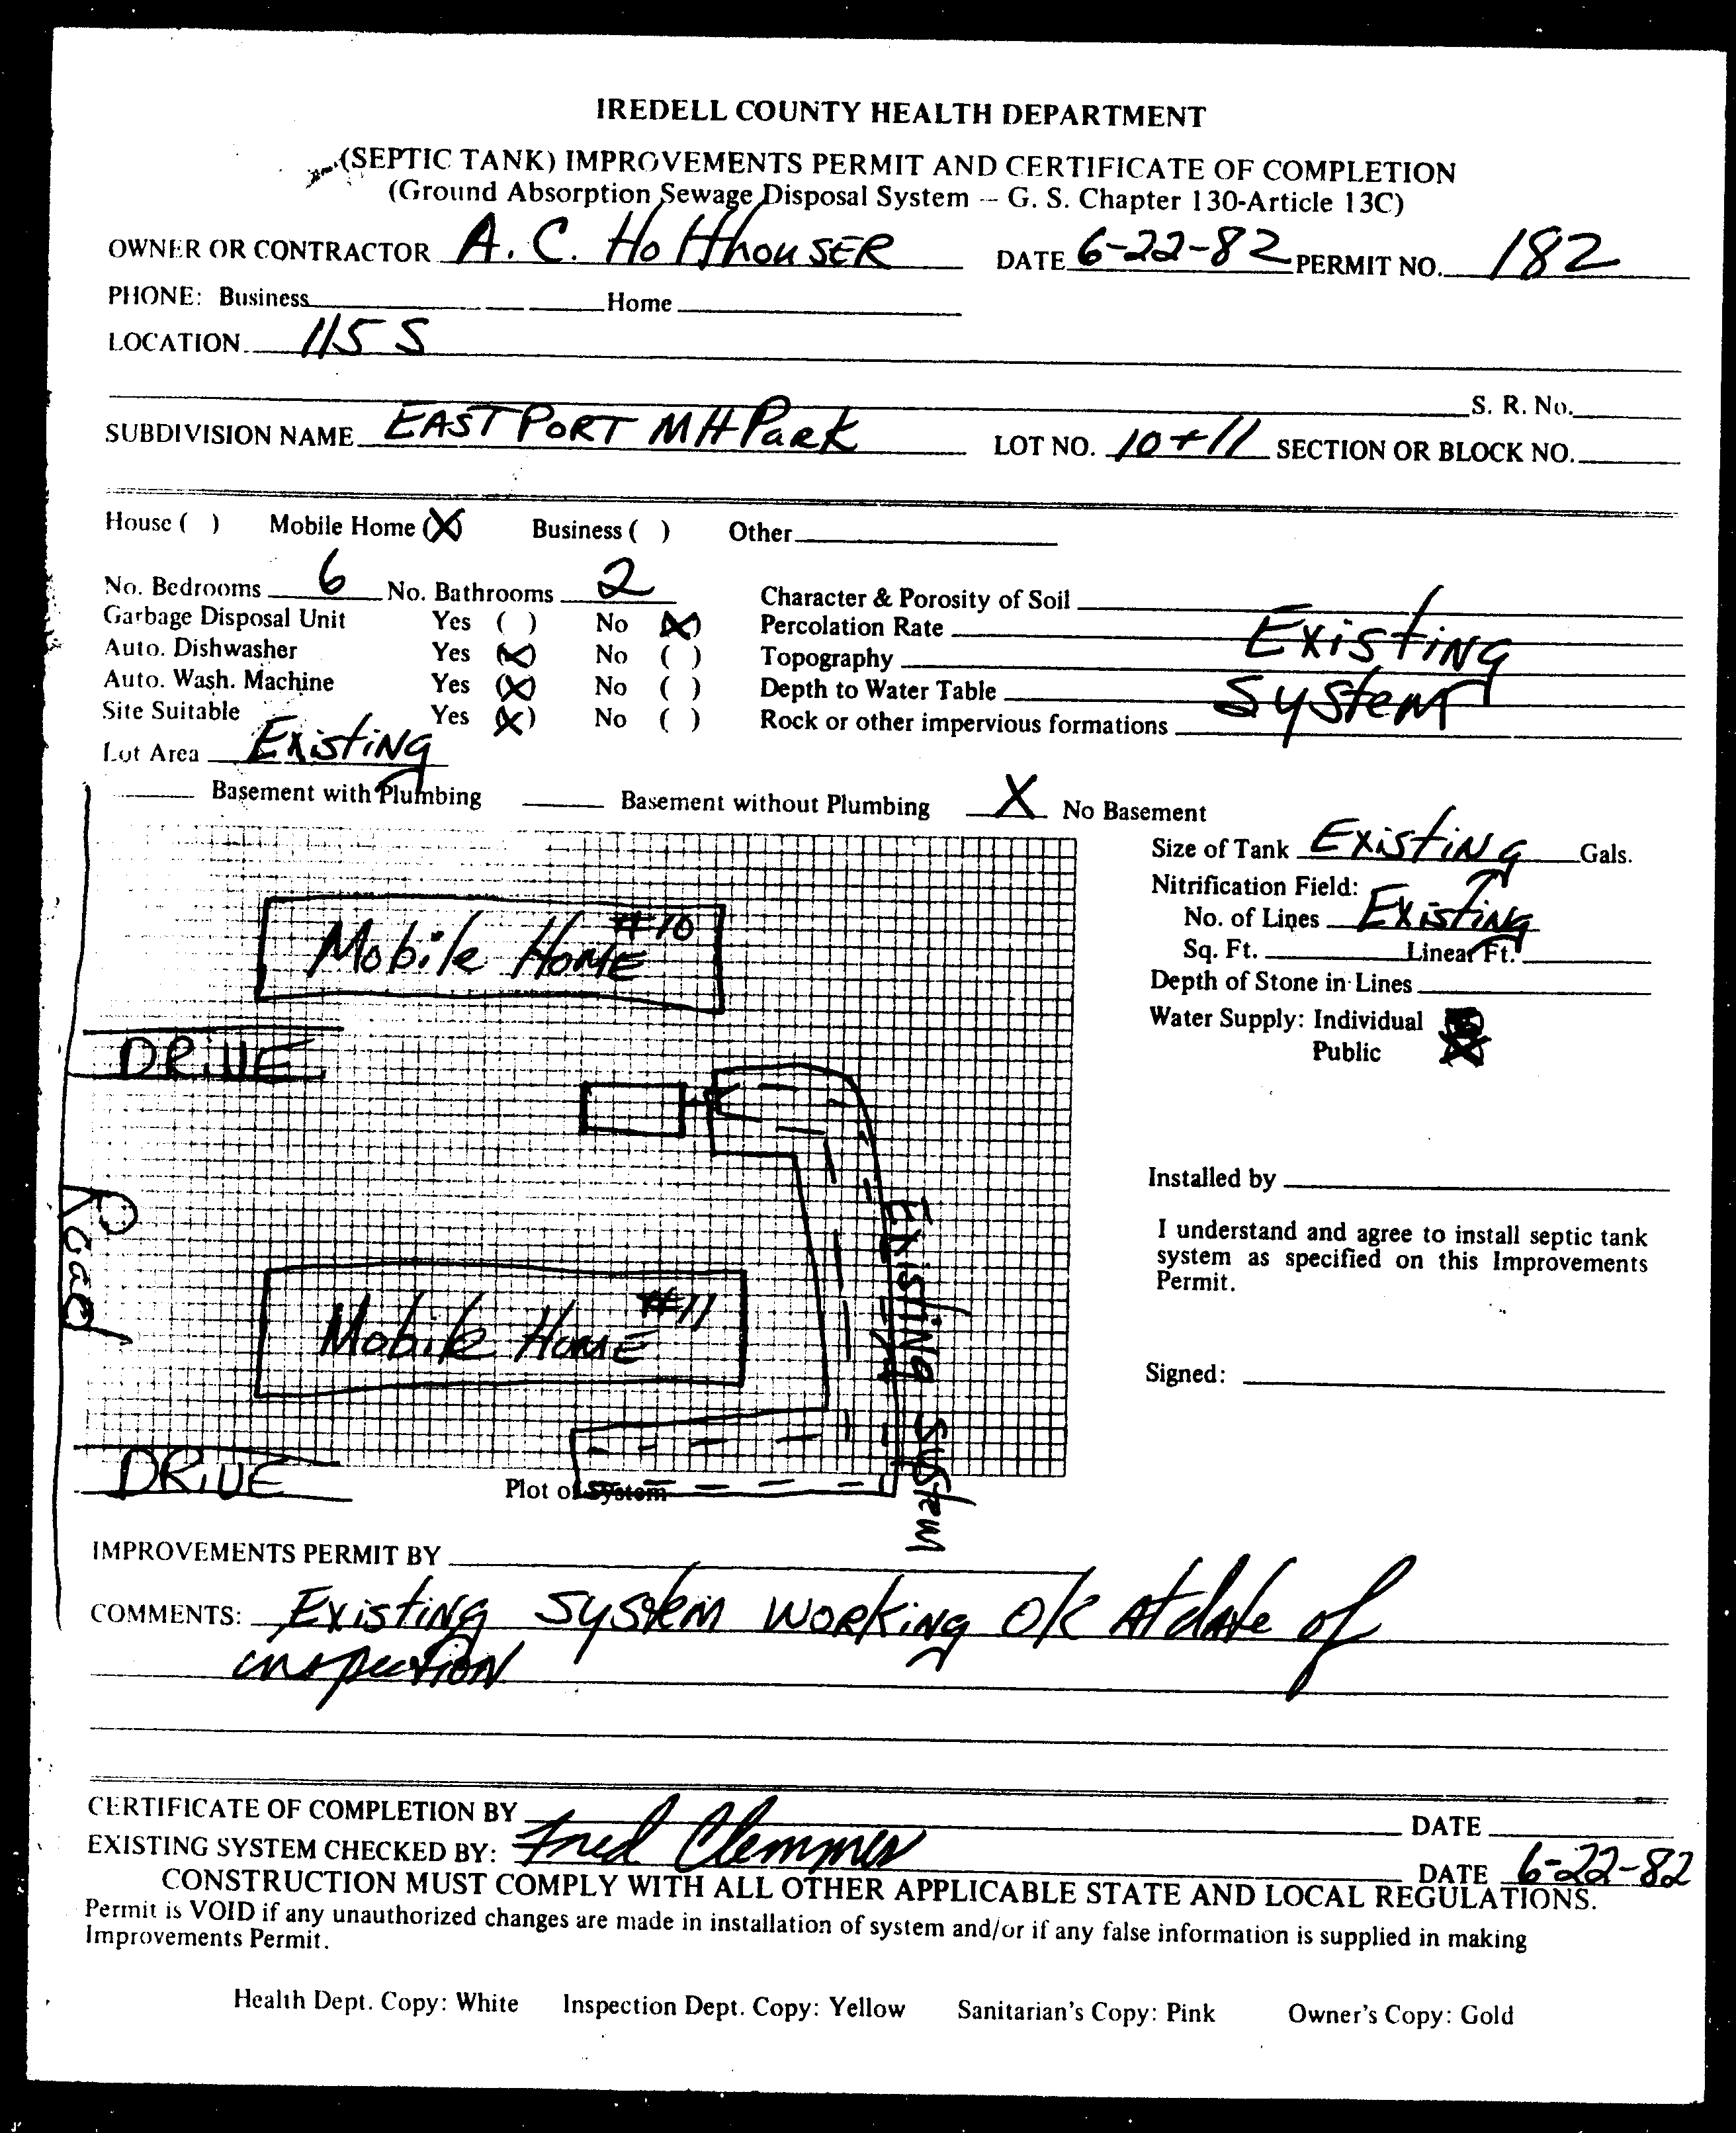 IREDELL COUNTY HEALTH DEPARTMENT
(SEPTIC TANK) IMPROVEMENTS PERMIT AND CERTIFICATE OF COMPLETION
(Ground Absorption Sewage Disposal System -- G. S. Chapter 130-Article 13C)
OWNER OR CONTRACTOR A. C. HoltHouSER DATE 6-22-82 PERMIT NO. 182
PHONE: Business Home
LOCATION 115 S
S. R. No.
SUBDIVISION NAME EASTPORT MH PARK LOT NO. 10+11 SECTION OR BLOCK NO.
House ( ) Mobile Home (X) Business ( ) Other
No. Bedrooms 6 No. Bathrooms 2 Character & Porosity of Soil
Garbage Disposal Unit Yes ( ) No (X) Percolation Rate Existing
Auto. Dishwasher Yes (X) No ( ) Topography
Auto. Wash. Machine Yes (X) No ( ) Depth to Water Table System
Site Suitable Yes (X) No ( ) Rock or other impervious formations
Lot Area Existing
Basement with Plumbing Basement without Plumbing X No Basement
Size of Tank Existing Gals.
Nitrification Field:
No. of Lines Existing
Sq. Ft. Linear Ft.
Depth of Stone in Lines
Water Supply: Individual
Public X
Mobile Home #10
DRIVE
Road
Existing System
Mobile Home #11
DRIVE
Plot of System
Installed by
I understand and agree to install septic tank
system as specified on this Improvements
Permit.
Signed:
IMPROVEMENTS PERMIT BY
COMMENTS: Existing System Working OK At date of
inspection
CERTIFICATE OF COMPLETION BY DATE
EXISTING SYSTEM CHECKED BY: Fred Clemmer DATE 6-22-82
CONSTRUCTION MUST COMPLY WITH ALL OTHER APPLICABLE STATE AND LOCAL REGULATIONS.
Permit is VOID if any unauthorized changes are made in installation of system and/or if any false information is supplied in making
Improvements Permit.
Health Dept. Copy: White Inspection Dept. Copy: Yellow Sanitarian's Copy: Pink Owner's Copy: Gold